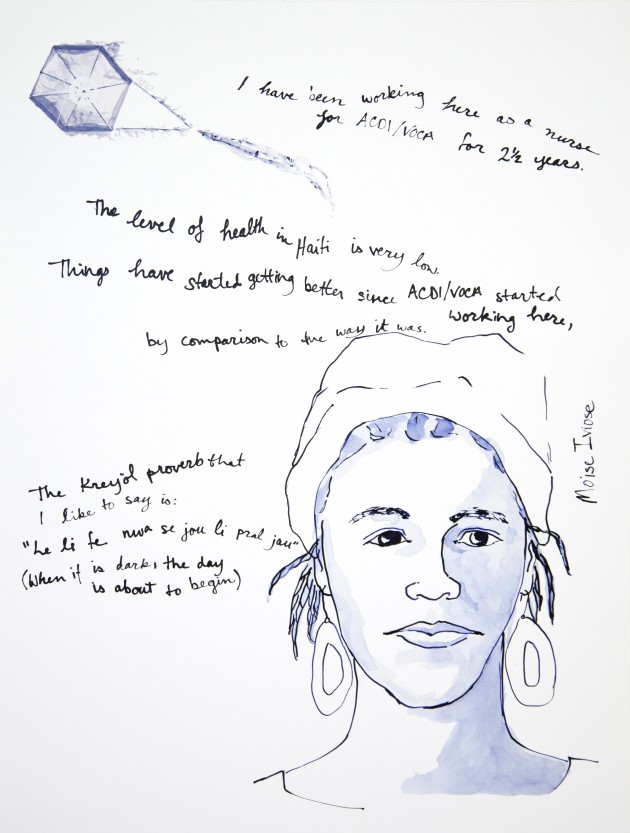 I have been working here as a nurse
for ACDI/VOCA for 2½ years.
The level of health in Haiti is very low.
Things have started getting better since ACDI/VOCA started
working here,
by comparison to the way it was.
Moise Iviose
The Kreyòl proverb that
I like to say is:
"Le li fe nwa se jou li pral jou"
(When it is dark, the day
is about to begin)